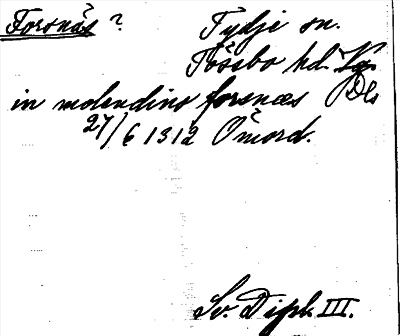 Forsnäs ? Tydje sn.
Tössbo hd. Vg.
in molendino forsnæs Dls
27/6 1312 Ömord.
Sv. Dipl. III.